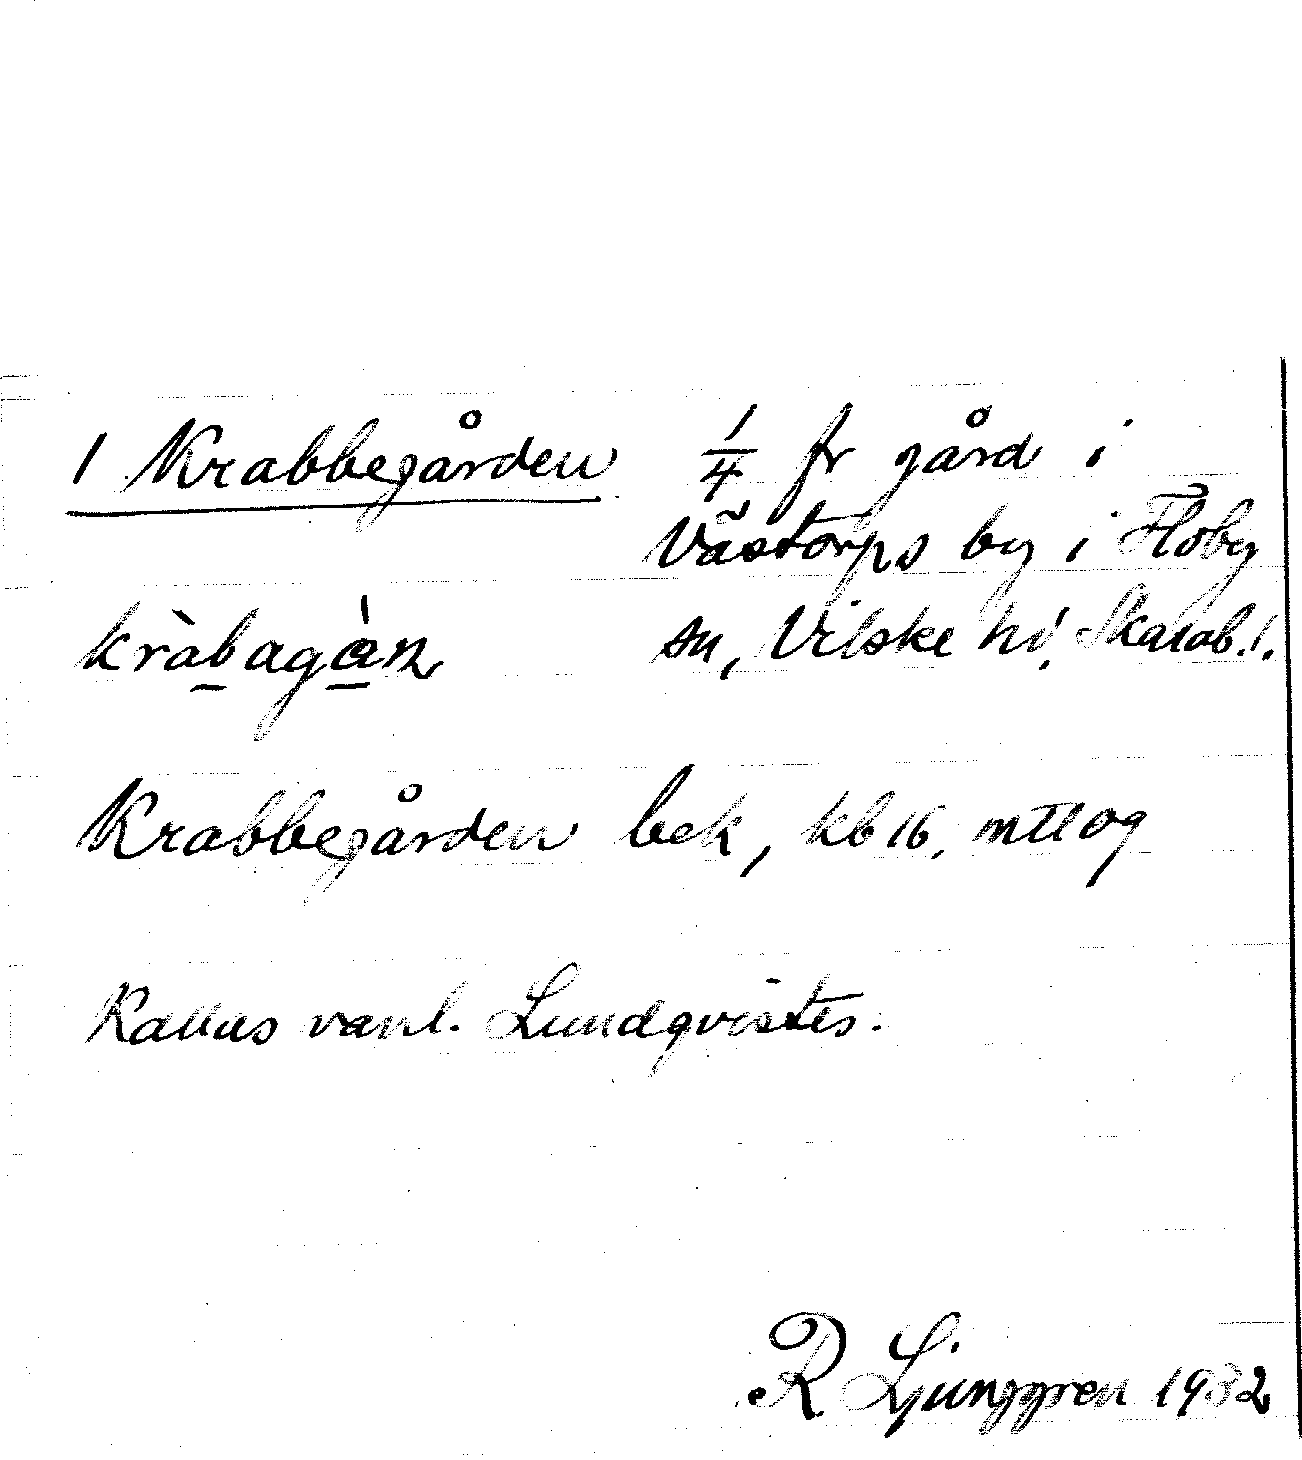 1 Krabbegården 1/4 fr gård i
Västorps by i Floby
kràbagàn sn, Vilske hd, Skarab. l.
Krabbegården bek, kb 16, mtl og
Kallas vanl. Lundqvistes.
R Ljunggren 1932